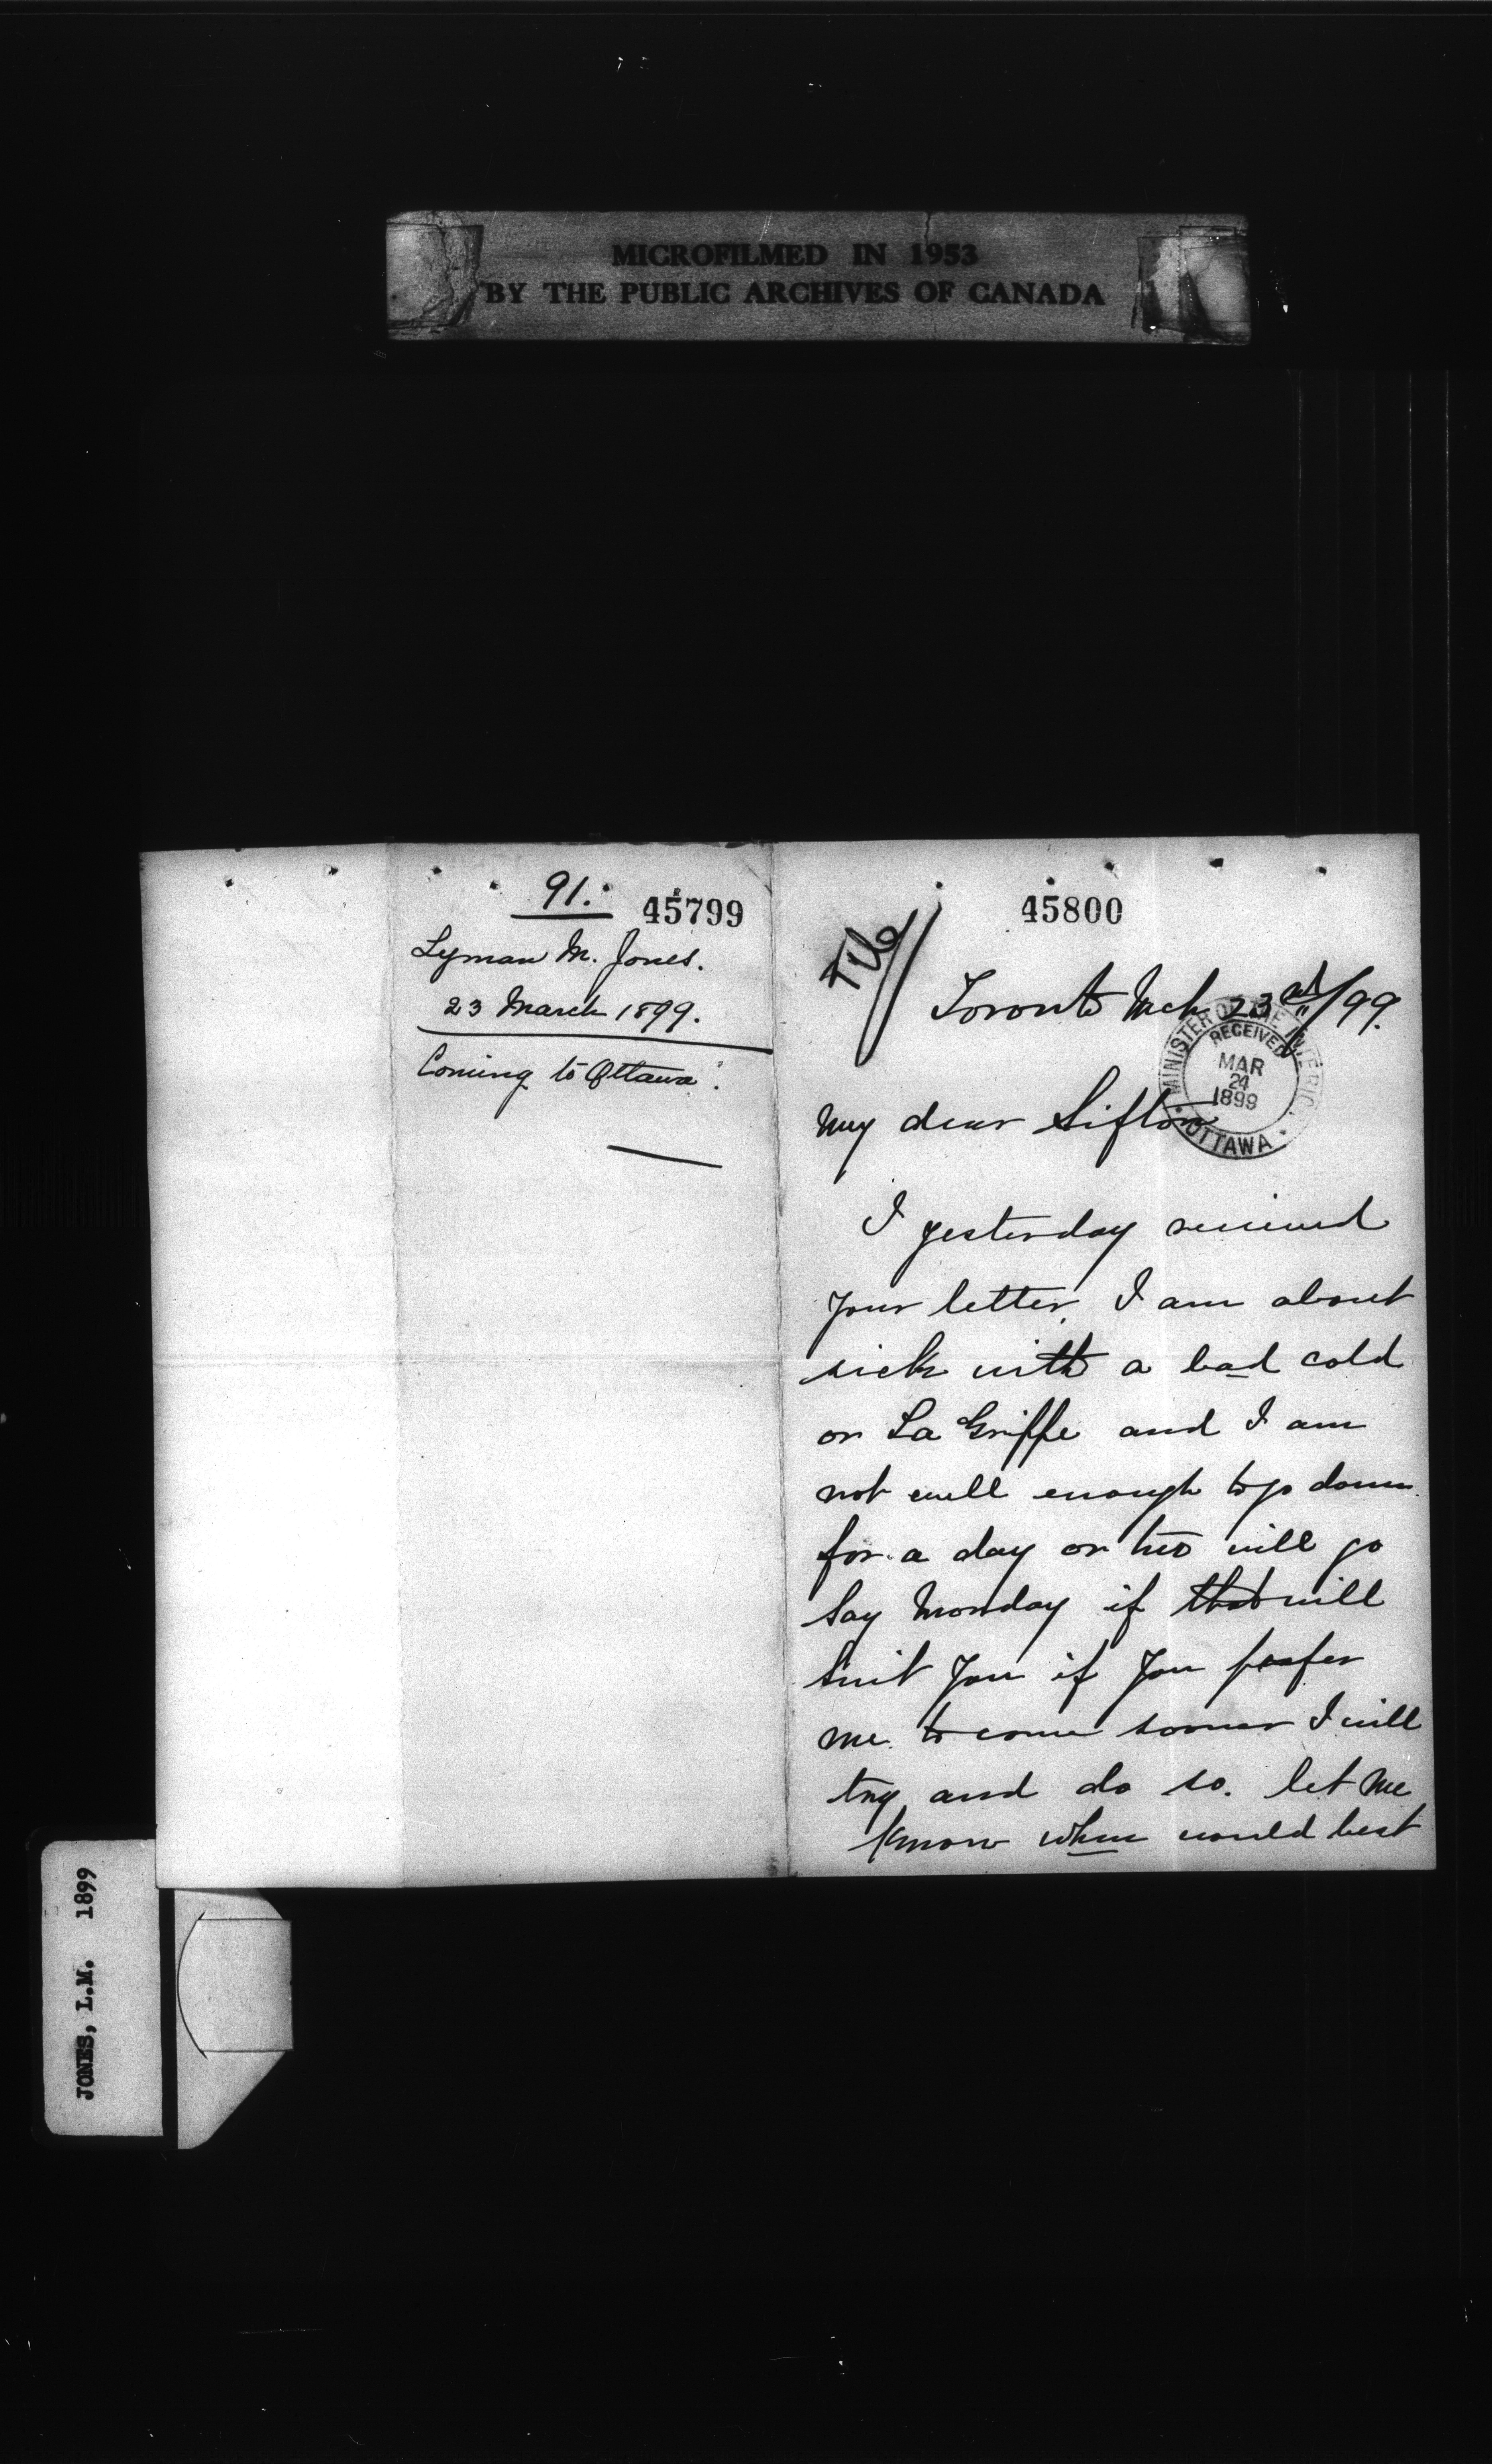 MICROFILMED IN 1953
BY THE PUBLIC ARCHIVES OF CANADA
91.
45799
Lyman M. Jones.
23 March 1899.
Coming to Ottawa.
45800
Toronto Mch 23rd/99.
MINISTER OF THE INTERIOR
RECEIVED
MAR
24
1899
OTTAWA
My dear Sifton
I yesterday received
your letter. I am about
sick with a bad cold
or La Griffe and I am
not well enough to go down
for a day or two will go
say Monday if that will
suit you if you prefer
me to come sooner I will
try and do so. let me
know when would best
JONES, L.M. 1899